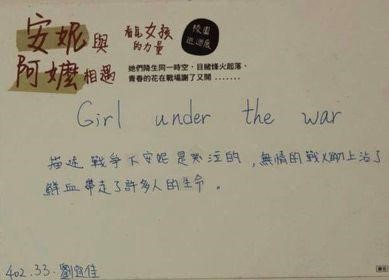 安妮與
阿嬤相遇
看見女孩
的力量
校園
巡迴展
她們降生同一時空，目睹烽火起落，
青春的花在戰場謝了又開 .......
Girl under the war
描述戰爭下安妮是無法的，無情的戰火染上沾了
鮮血帶走了許多人的生命。
402.33.劉宜佳